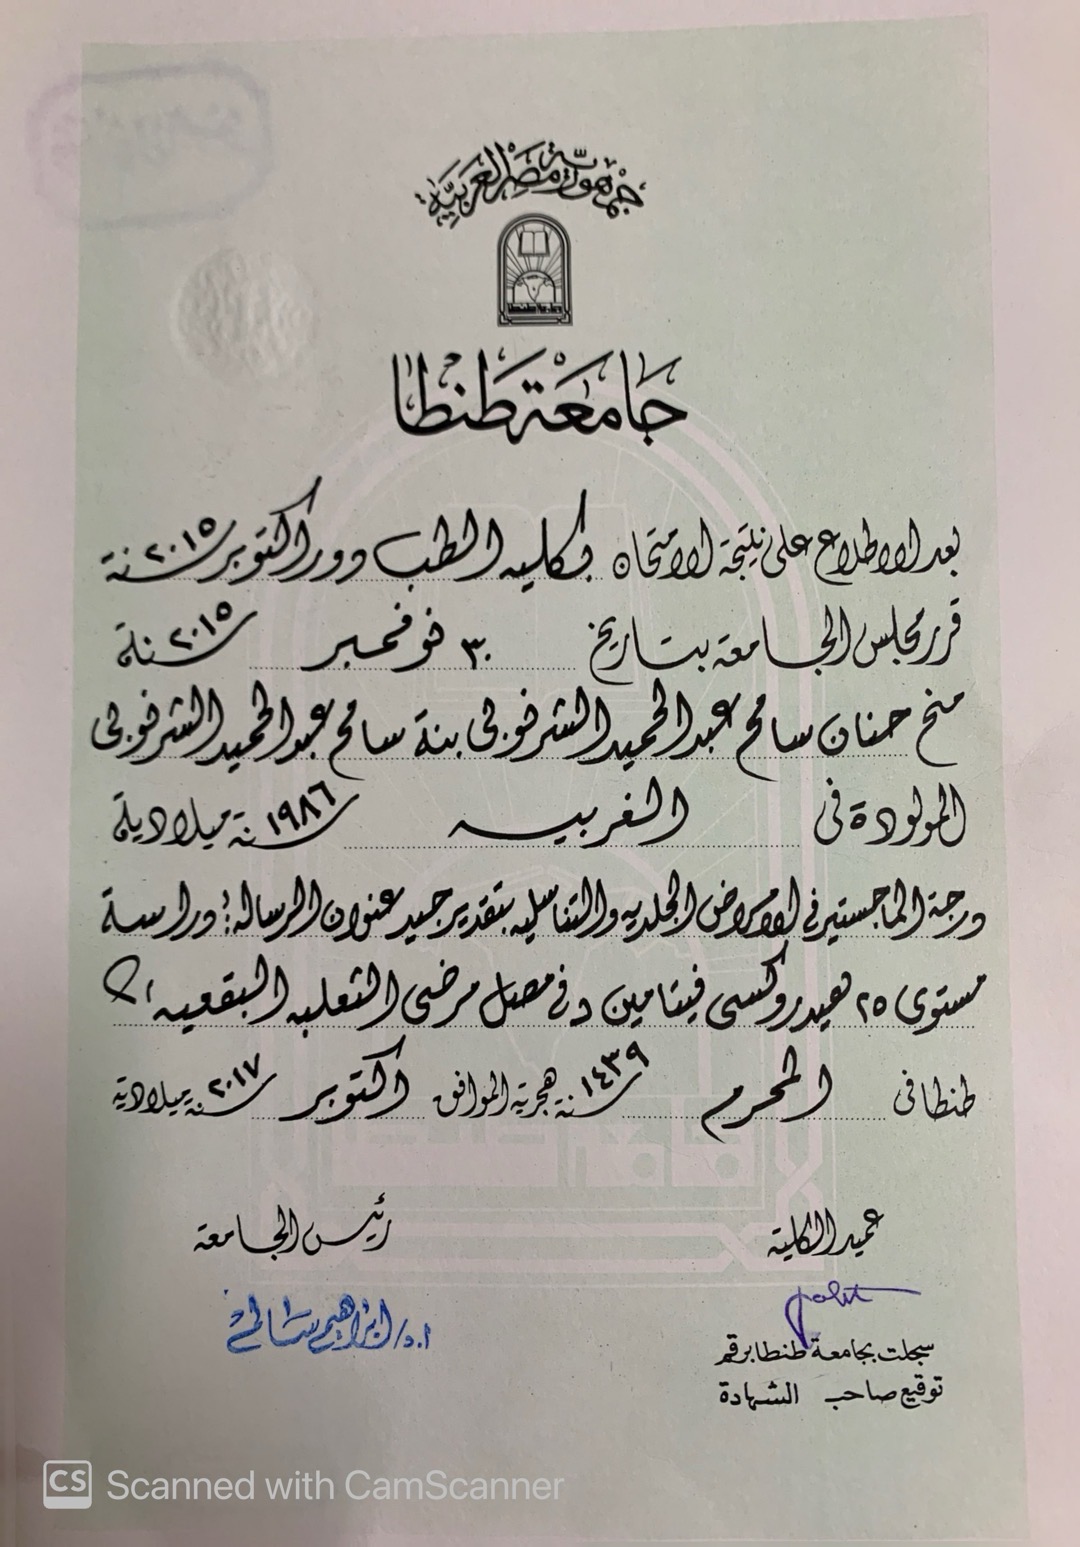 جمهورية مصر العربية
جامعة طنطا
جامعة طنطا
بعد الاطلاع على نتيجة الامتحان بكلية الطب دور اكتوبر سنة ٢٠١٥
قرر مجلس الجامعة بتاريخ ٣٠ نوفمبر سنة ٢٠١٥
منح حنان سامح عبد الحميد الشرنوبى بنة سامح عبد الحميد الشرنوبى
المولودة فى الغربيه سنة ١٩٨٦ ميلادية
درجة الماجستير فى الامراض الجلديه والتناسليه بتقدير جيد عنوان الرساله: دراسة
مستوى ٢٥ هيدروكسى فيتامين د فى مصل مرضى الثعلبه البقعيه
طنطا فى المحرم سنة ١٤٣٩ هجرية الموافق اكتوبر سنة ٢٠١٧ ميلادية
عميد الكلية
رئيس الجامعة
ا.د/ ابراهيم سالم
سجلت بجامعة طنطا برقم
توقيع صاحب الشهادة
CS Scanned with CamScanner